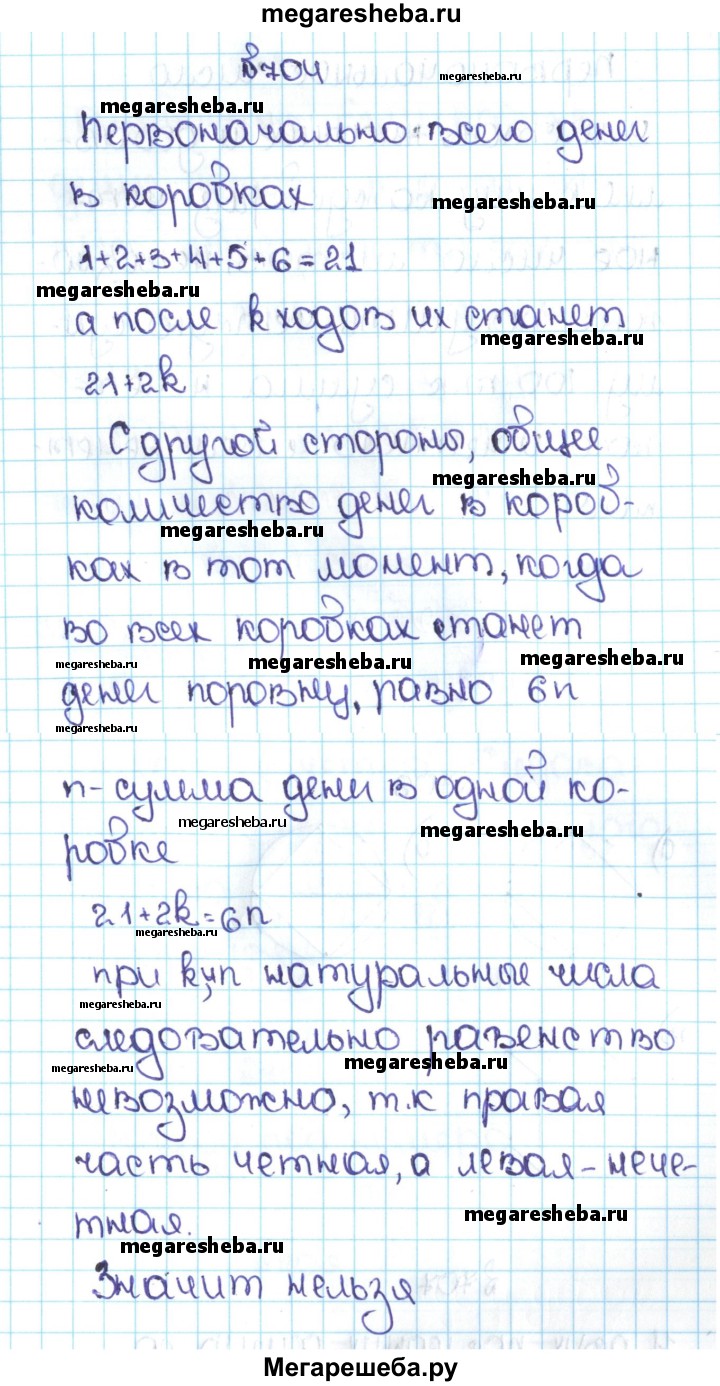 megaresheba.ru
В704
megaresheba.ru
megaresheba.ru
Первоначально всего денег
в коробках
megaresheba.ru
1+2+3+4+5+6=21
megaresheba.ru
а после k ходов их станет
megaresheba.ru
21+2k
С другой стороны, общее
megaresheba.ru
количество денег в короб-
megaresheba.ru
ках в тот момент, когда
во всех коробках станет
megaresheba.ru
megaresheba.ru
megaresheba.ru
денег поровну, равно 6n
megaresheba.ru
n-сумма денег в одной ко-
megaresheba.ru
megaresheba.ru
робке
21+2k=6n
megaresheba.ru
при k, n натуральные числа
megaresheba.ru
следовательно равенство
megaresheba.ru
megaresheba.ru
невозможно, т.к правая
часть четная, а левая-нече-
тная.
megaresheba.ru
megaresheba.ru
Значит нельзя
Мегарешеба.ру